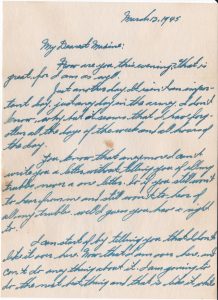 March 13, 1945
My Dearest Maxine:
How are you this evening, that is
great, for I am as well.
Just another day. It isn't an impor-
tant day, just any day in the army. I don't
know why, but it seems that I have forgot-
ten all the days of the week and all hours of
the day.
You know that anymore I can't
write you a letter without telling you of all my
troubles never a one letter. So if you still want
to hear from me and still want to hear of
all my trouble well I guess you have a right
to.
I am start by telling you that I don't
like it over here. Now that I am over here and
can't do any thing about it. I am going to
do the next best thing and that is like it while